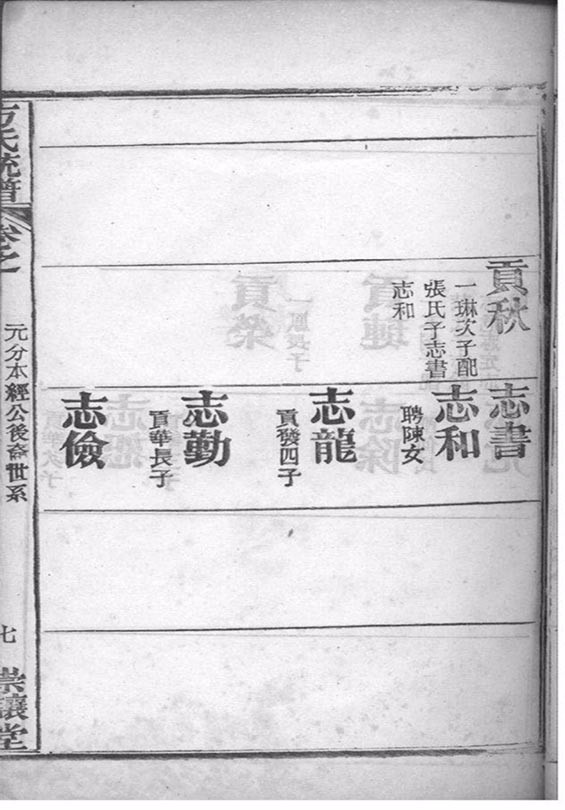 貢秋
一琳次子配
張氏子志書
志和
志書
志和
聘陳女
志龍
貢發四子
志勤
貢華長子
志儉
氏統譜
卷之
元分本經公後裔世系
七
崇讓堂